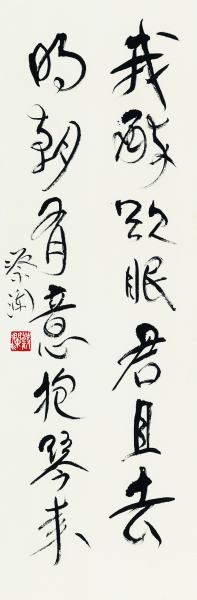 我醉欲眠君且去
明朝有意抱琴来
蔡澜